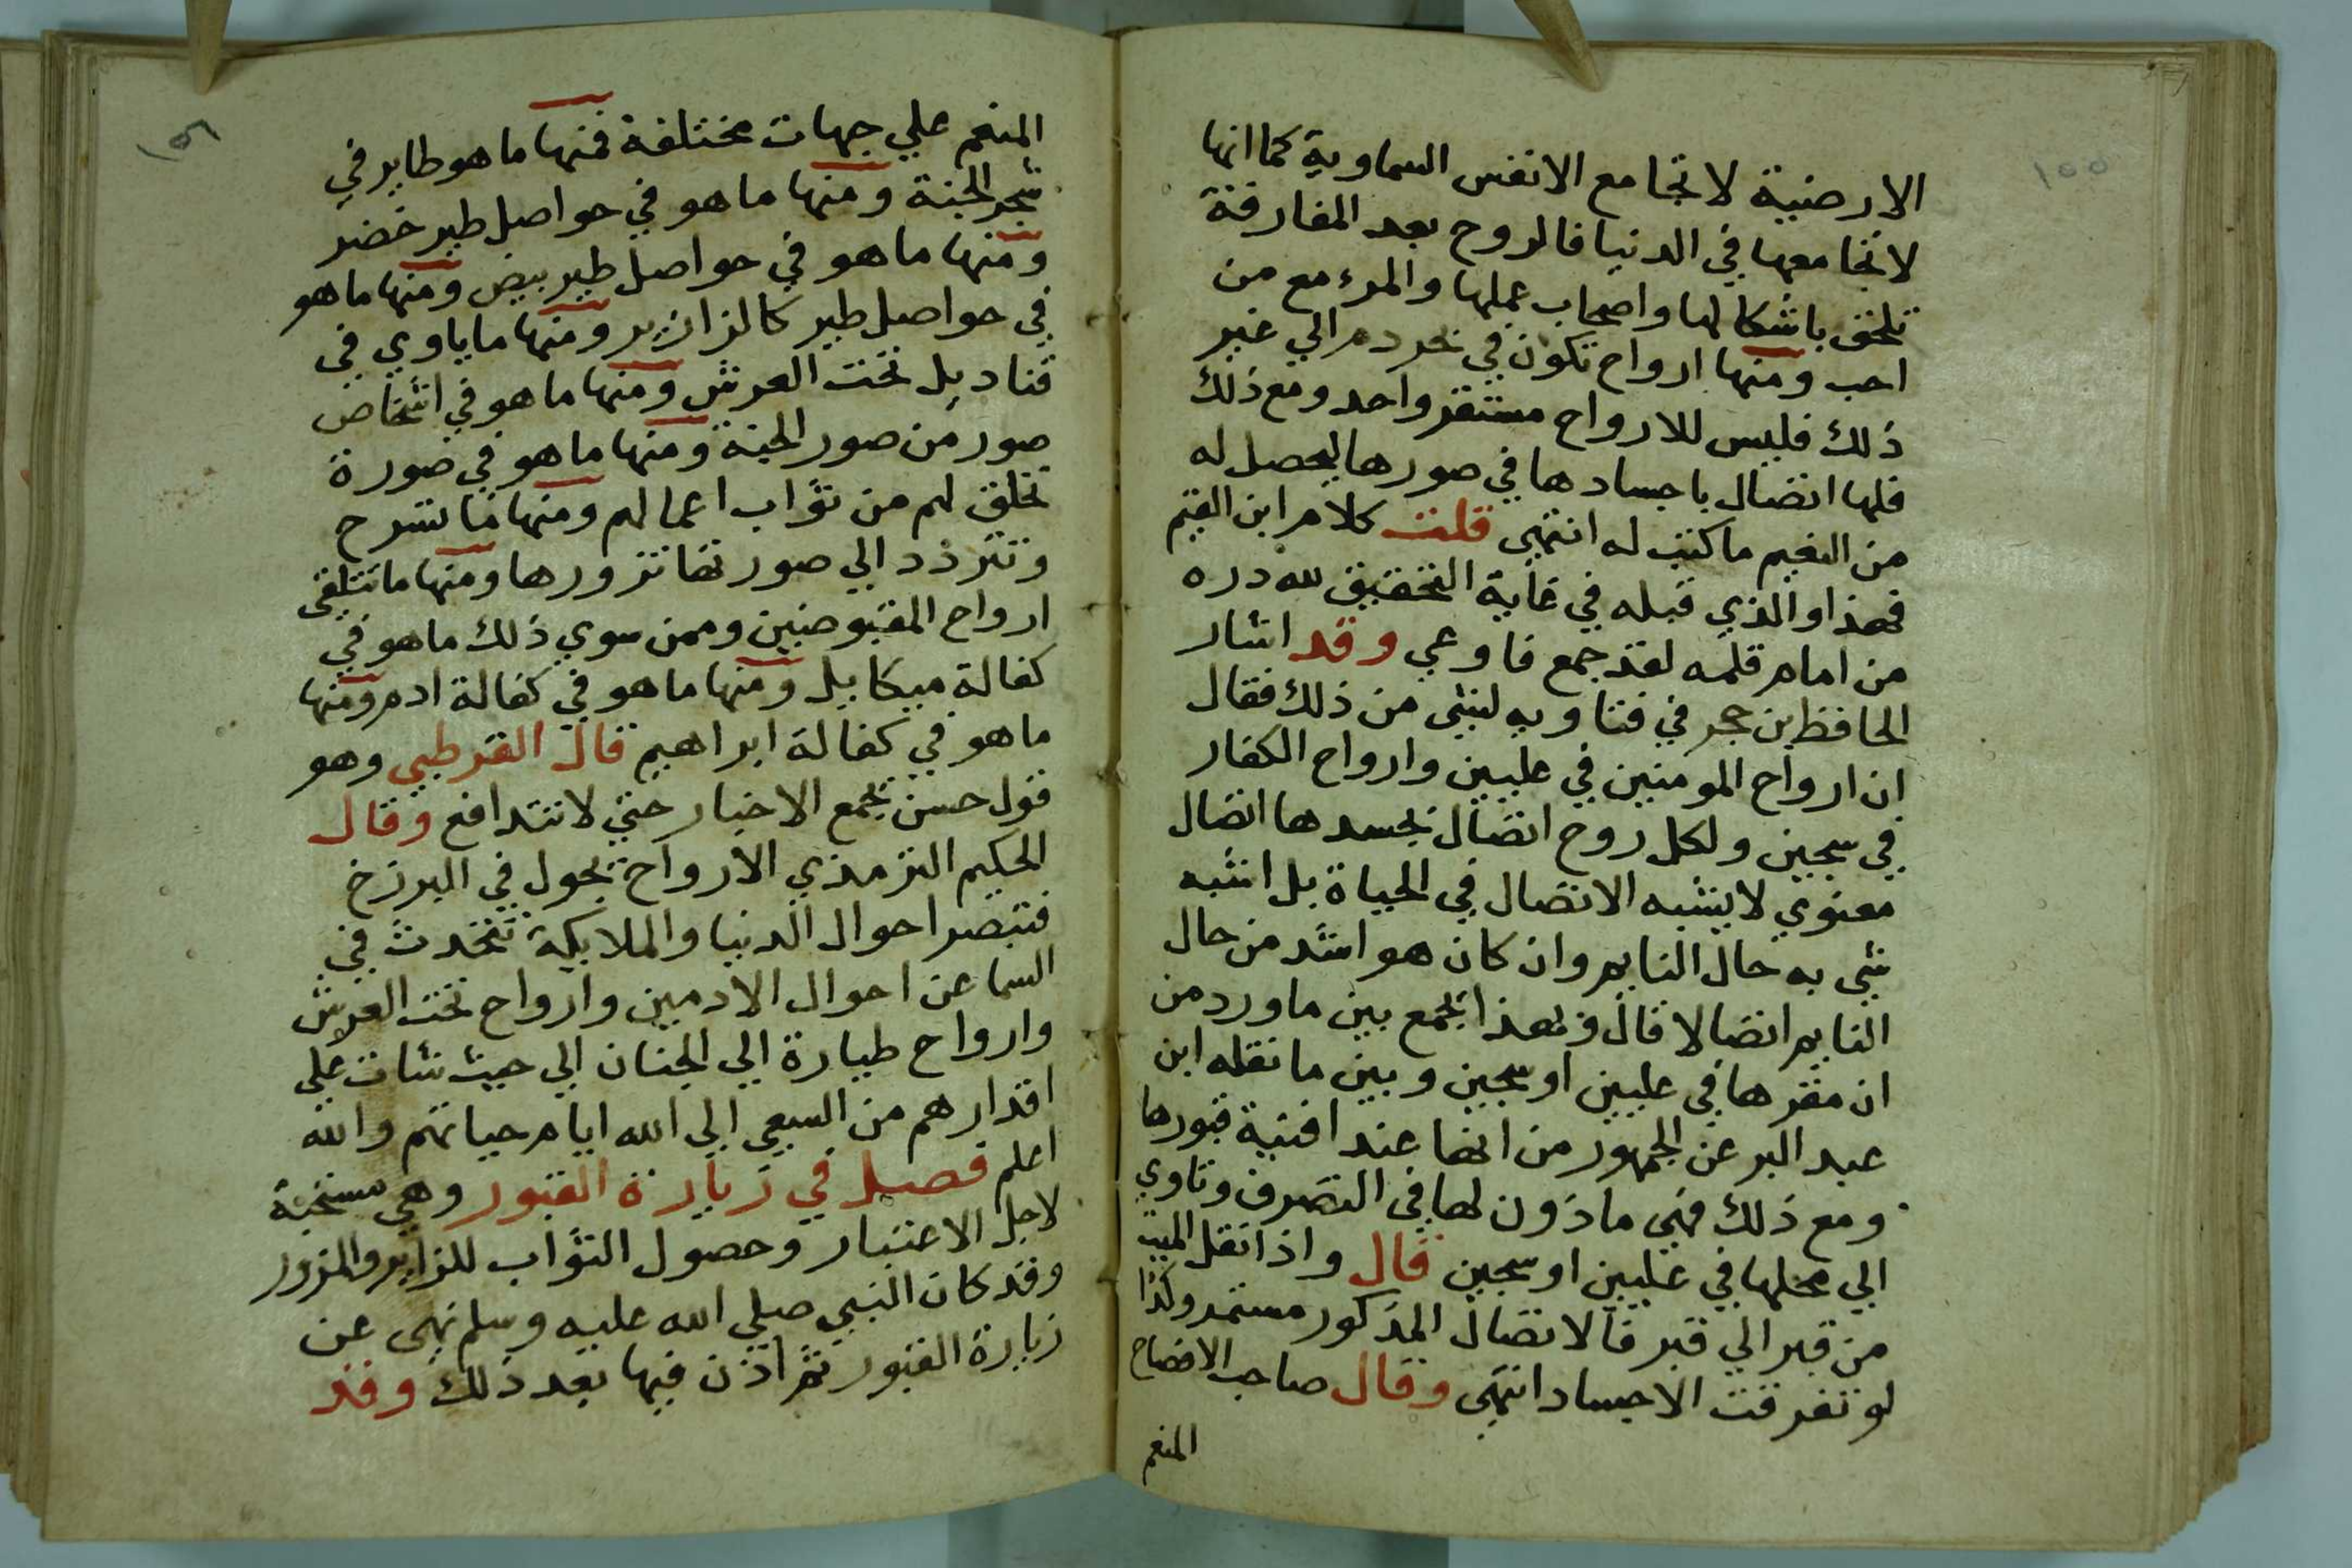 ١٥٥
الارضية لا تجامع الانفس السماوية كما انها
لا تجامعها في الدنيا فالروح بعد المفارقة
تلحق باشكالها واصحاب عملها والمرء مع من
احب ومنها ارواح تكون في نهر دم الي غير
ذلك فليس للارواح مستقر واحد ومع ذلك
فلها اتصال باجسادها في صورها ليحصل له
من النعيم ما كتب له انتهي قلت كلام ابن القيم
فهذا والذي قبله في غاية التحقيق لله دره
من امام قلمه لقد جمع فاوعي وقد اشار
الحافظ بن حجر في فتاويه لشي من ذلك فقال
ان ارواح المومنين في عليين وارواح الكفار
في سجين ولكل روح اتصال بجسدها اتصال
معنوي لا يشبه الاتصال في الحياة بل اشبه
شي به حال النايم وان كان هو اشد من حال
النايم اتصالا قال وبهذا يجمع بين ما ورد من
ان مقرها في عليين او سجين وبين ما نقله ابن
عبد البر عن الجمهور من انها عند افنية قبورها
ومع ذلك فهي ماذون لها في التصرف وتاوي
الي محلها في عليين او سجين قال واذا نقل الميت
من قبر الي قبر فالاتصال المذكور مستمر وكذا
لو تفرقت الاجساد انتهي وقال صاحب الافصاح
المنعم
١٥٦
المنعم علي جهات مختلفة فمنها ما هو طاير في
شجر الجنة ومنها ما هو في حواصل طير خضر
ومنها ما هو في حواصل طير بيض ومنها ما هو
في حواصل طير كالزرازير ومنها ما ياوي في
قناديل تحت العرش ومنها ما هو في اشخاص
صور من صور الجنة ومنها ما هو في صورة
تخلق لهم من ثواب اعمالهم ومنها ما تسرح
وتتردد الي صورتها تزورها ومنها ما تتلقي
ارواح المقبوضين وممن سوي ذلك ما هو في
كفالة ميكاييل ومنها ما هو في كفالة ادم ومنها
ما هو في كفالة ابراهيم قال القرطبي وهو
قول حسن يجمع الاخبار حتي لا تتدافع وقال
الحكيم الترمذي الارواح تجول في البرزخ
فتبصر احوال الدنيا والملايكة تتحدث في
السما عن احوال الادميين وارواح تحت العرش
وارواح طيارة الي الجنان الي حيث شات علي
اقدارهم من السعي الي الله ايام حياتهم والله
اعلم فصل في زيارة القبور وهي مستحبة
لاجل الاعتبار وحصول الثواب للزاير والمزور
وقد كان النبي صلي الله عليه وسلم نهي عن
زيارة القبور ثم اذن فيها بعد ذلك وقد